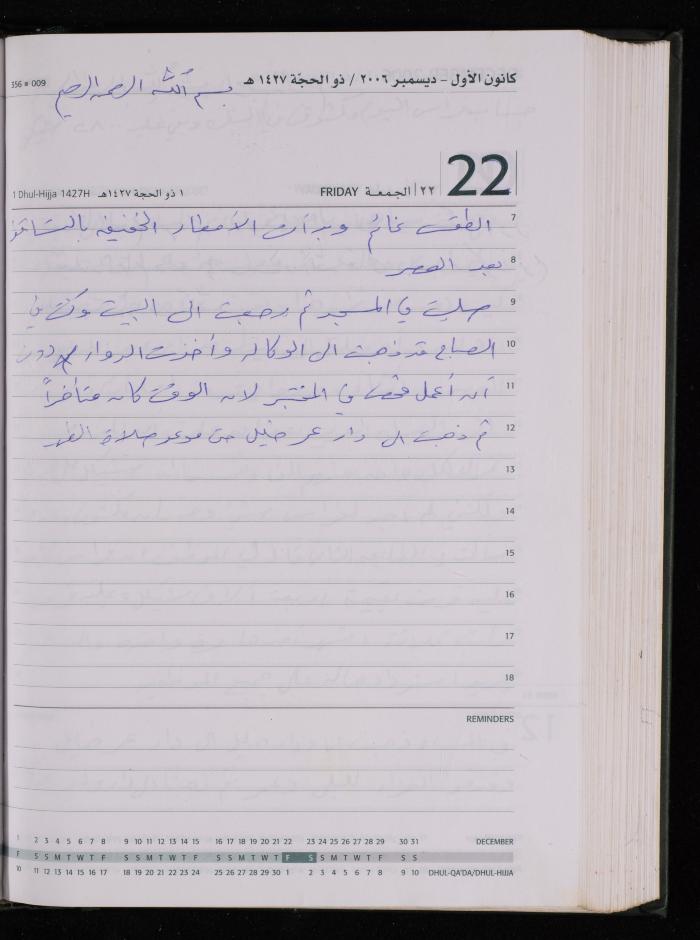 كانون الأول - ديسمبر ٢٠٠٦ / ذو الحجّة ١٤٢٧ هـ
356 ■ 009
بسم الله الرحمن الرحيم
22
٢٢ | الجمعـة FRIDAY
١ ذو الحجة ١٤٢٧هـ 1 Dhul-Hijja 1427H
7 الطقس غائم وبدأت الأمطار الخفيفه بالتساقط
8 بعد العصر
9 صليت في المسجد ثم رجعت الى البيت وكنت في
10 الصباح قد ذهبت الى الوكاله وأخذت الدواء دون
11 أن أعمل فحص في المختبر لان الوقت كان متأخراً
12 ثم ذهبت الى دار عمر خليل حتى موعد صلاة الظهر
13
14
15
16
17
18
REMINDERS
1 2 3 4 5 6 7 8 9 10 11 12 13 14 15 16 17 18 19 20 21 22 23 24 25 26 27 28 29 30 31 DECEMBER
F S S M T W T F S S M T W T F S S M T W T F S S M T W T F S S
10 11 12 13 14 15 16 17 18 19 20 21 22 23 24 25 26 27 28 29 30 1 2 3 4 5 6 7 8 9 10 DHUL-QA'DA/DHUL-HIJJA